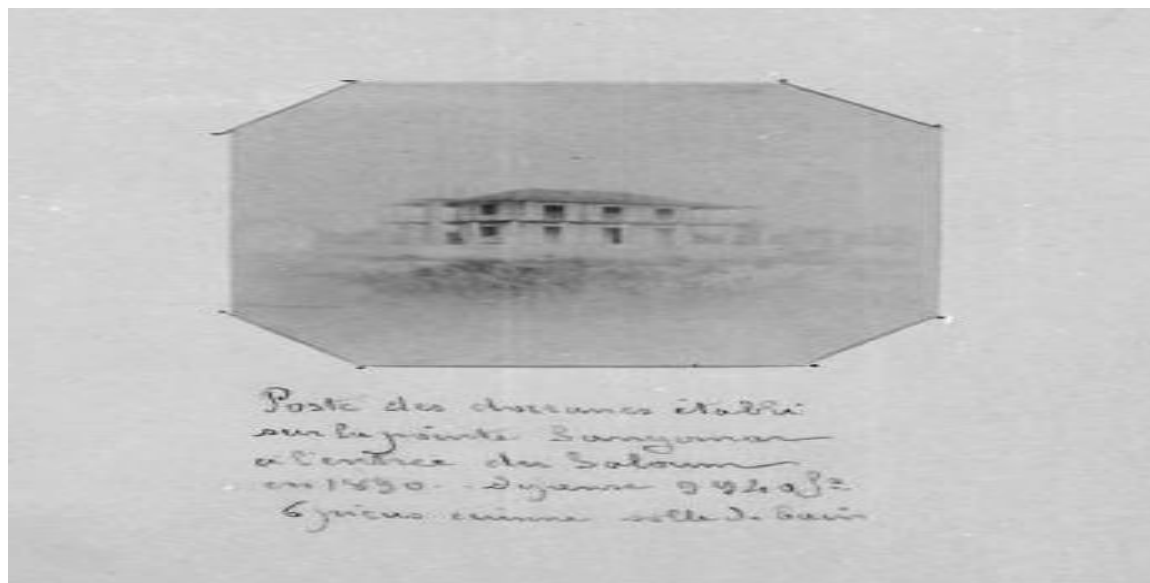 Poste des douanes établi
sur la pointe Sangomar
a l'entrée du Saloum
en 1890. Dépense
6 pièces cuisine salle de bain